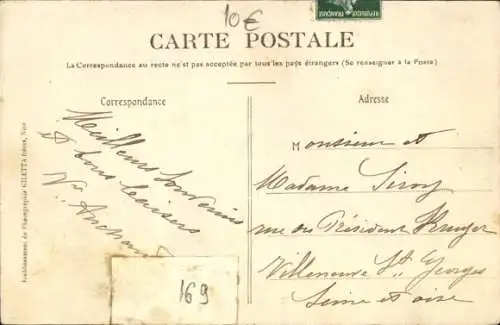 10€
RÉPUBLIQUE FRANÇAISE
CARTE POSTALE
La Correspondance au recto n'est pas acceptée par tous les pays étrangers (Se renseigner à la Poste)
Correspondance
Meilleurs Souvenirs
et bons baisers
169
Adresse
Monsieur et
Madame Siroy
rue du Président Kruger
Villeneuve St. Georges
Seine et oise
Etablissement de Photographie GILETTA frères, Nice